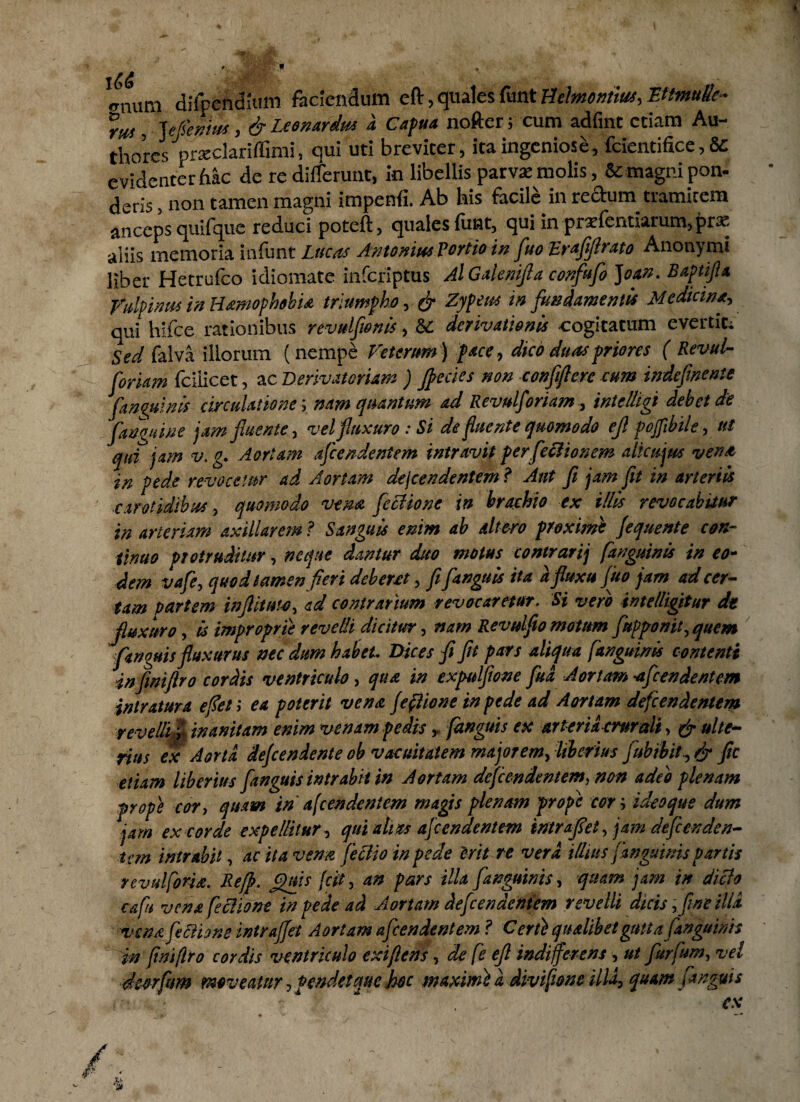 166
gnum diſpendium faciendum eſt, quales ſunt Helmontius, Ettmulle-
rus, Jeſſenius, & Leonardus à Capua noſter; cum adſint etiam Au-
thores præclariſſimi, qui uti breviter, ita ingenioſè, ſcientifice, &
evidenter hâc de re diſſerunt, in libellis parvæ molis, & magni pon-
deris, non tamen magni impenſi. Ab his facilè in rectum tramitem
anceps quiſque reduci poteſt, quales ſunt, qui in præſentiarum, præ
aliis memoria inſunt Lucas Antonius Portio in ſuo Eraſiſtrato Anonymi
liber Hetruſco idiomate inſcriptus Al Galeniſta confuſo Joan. Baptiſta
Vulpinus in Hæmophobiæ triumpho, & Zypeus in fundamentis Medicinæ,
qui hiſce rationibus revulſionis, & derivationis cogitatum evertit.
Sed ſalvâ illorum (nempè Veterum) pace, dico duas priores (Revul-
ſoriam ſcilicet, ac Derivatoriam) ſpecies non conſiſtere cum indeſinente
ſanguinis circulatione; nam quantum ad Revulſoriam, intelligi debet de
ſanguine jam fluente, vel fluxuro: Si de fluente quomodo eſt poſſibile, ut
qui jam v. g. Aortam aſcendentem intravit per ſectionem alicujus venæ
in pede revocetur ad Aortam deſcendentem? Aut ſi jam ſit in arteriis
carotidibus, quomodo venæ ſectione in brachio ex illis revocabitur
in arteriam axillarem? Sanguis enim ab altero proximè ſequente con-
tinuo protruditur, neque dantur duo motus contrarij ſanguinis in eo-
dem vaſe, quod tamen fieri deberet, ſi ſanguis ita à fluxu ſuo jam ad cer-
tam partem inſtituto, ad contrarium revocaretur. Si verò intelligitur de
fluxuro, is impropriè revelli dicitur, nam Revulſio motum ſupponit, quem
ſanguis fluxurus nec dum habet. Dices ſi ſit pars aliqua ſanguinis contenti
in ſiniſtro cordis ventriculo, quæ in expulſione ſuâ Aortam aſcendentem
intratura eſſet; ea poterit venæ ſectione in pede ad Aortam deſcendentem
revelli; inanitam enim venam pedis, ſanguis ex arteriâ crurali, & ulte-
rius ex Aortâ deſcendente ob vacuitatem majorem, liberius ſubibit, & ſic
etiam liberius ſanguis intrabit in Aortam deſcendentem, non adeò plenam
propè cor, quam in aſcendentem magis plenam propè cor; ideoque dum
jam ex corde expellitur, qui aliàs aſcendentem intraſſet, jam deſcenden-
tem intrabit, ac ita venæ ſectio in pede erit re verâ illius ſanguinis partis
revulſoria. Reſp. Quis ſcit, an pars illa ſanguinis, quam jam in dicto
caſu venæ ſectione in pede ad Aortam deſcendentem revelli dicis, ſine illâ
venæ ſectione intraſſet Aortam aſcendentem? Certè quælibet gutta ſanguinis
in ſiniſtro cordis ventriculo exiſtens, de ſe eſt indifferens, ut ſurſum, vel
deorſum moveatur, pendetque hoc maximè à diviſione illâ, quam ſanguis
ex